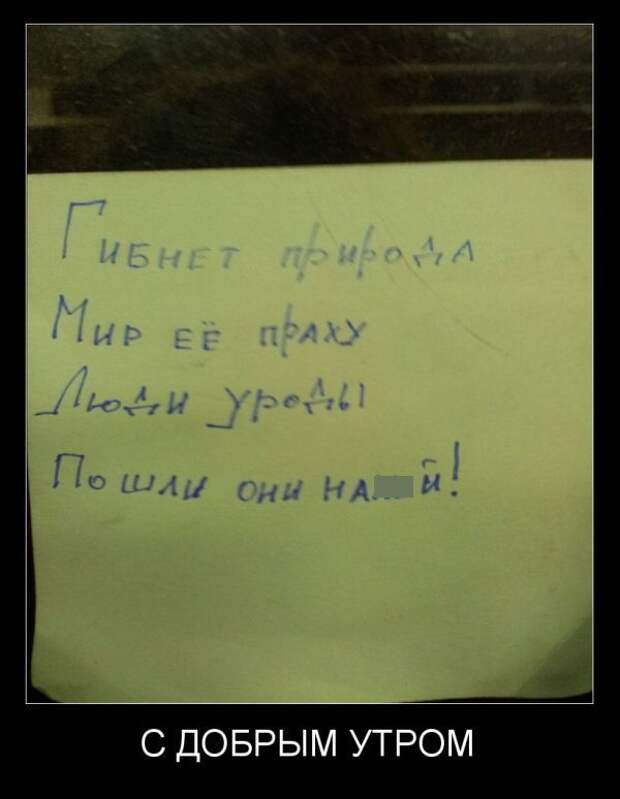 Гибнет природа
Мир её праху
Люди уроды
Пошли они на й!
С ДОБРЫМ УТРОМ